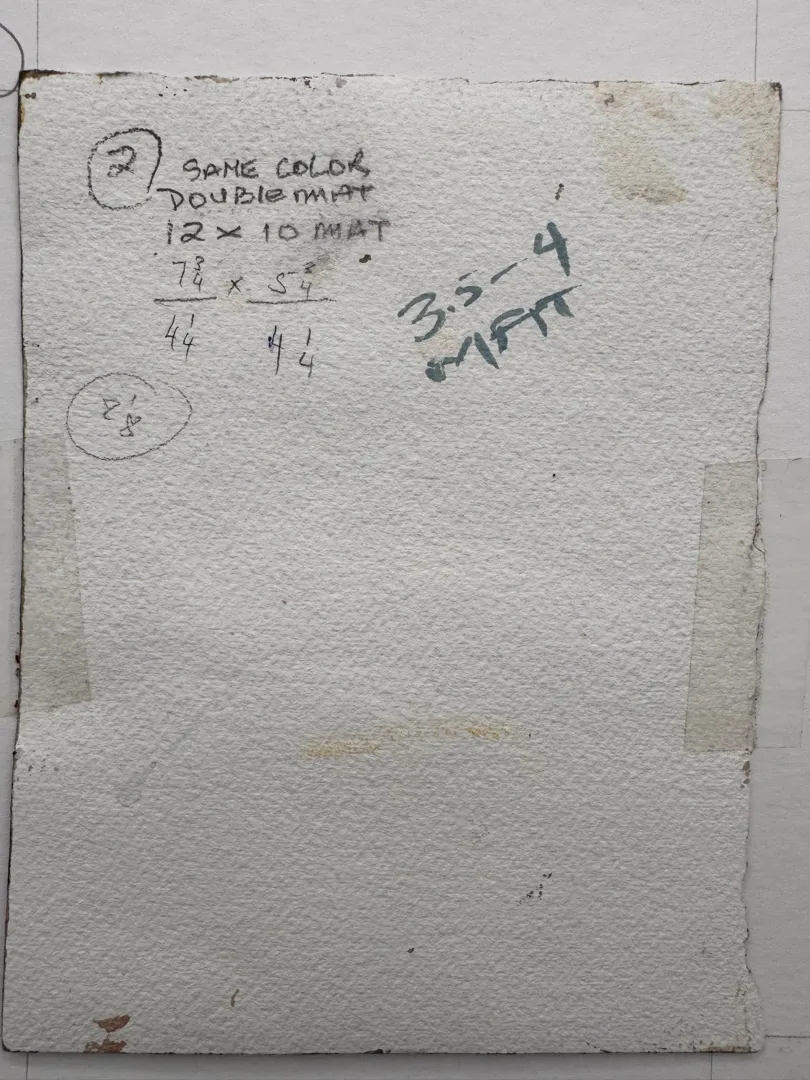 2
SAME COLOR
DOUBLE MAT
12 x 10 MAT
7 3/4 x 5 3/4
4 1/4 4 1/4
2 1/8
3.5-4